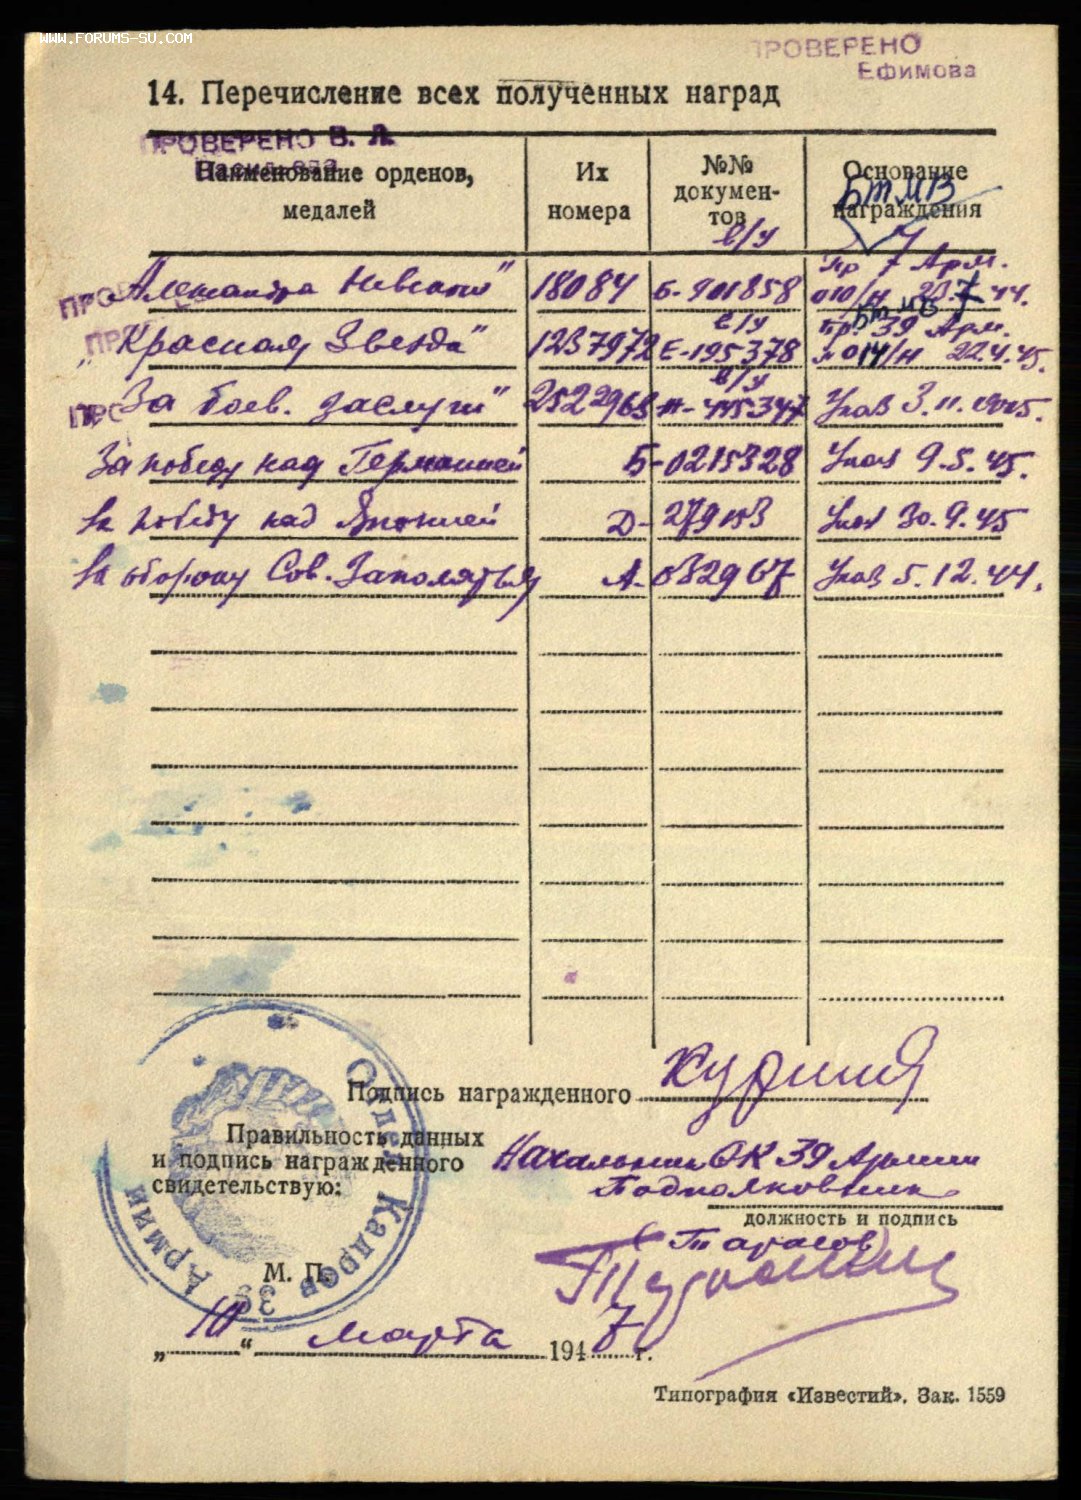 WWW.FORUMS-SU.COM
ПРОВЕРЕНО
Ефимова
14. Перечисление всех полученных наград
ПРОВЕРЕНО В. Л.
Наименование орденов, медалей
Их номера
№№ документов
Основание награждения
БТ МВ
в/у
Пр 7 Арм.
„Александра Невского" 18084 Б-901858 010/н 23.7.44.
БТ МВ
с/у Пр. 39 Арм.
„Красная Звезда" 1237972 Е-195378 № 014/н 22.4.45.
в/у
„За боев. заслуги" 2522968 445347 Указ 3.11.1945.
За победу над Германией Б-0215328 Указ 9.5.45.
За победу над Японией Д- 279153 Указ 30.9.45
За оборону Сов. Заполярья А- 032967 Указ 5.12.44.
Подпись награжденного
Правильность данных
и подпись награжденного
свидетельствую:
Начальник ОК 39 Армии
Подполковник
должность и подпись
Тарасов
М. П.
Отдел Кадров 39 Армии
„10“ марта 1947 г.
Типография «Известий». Зак. 1559